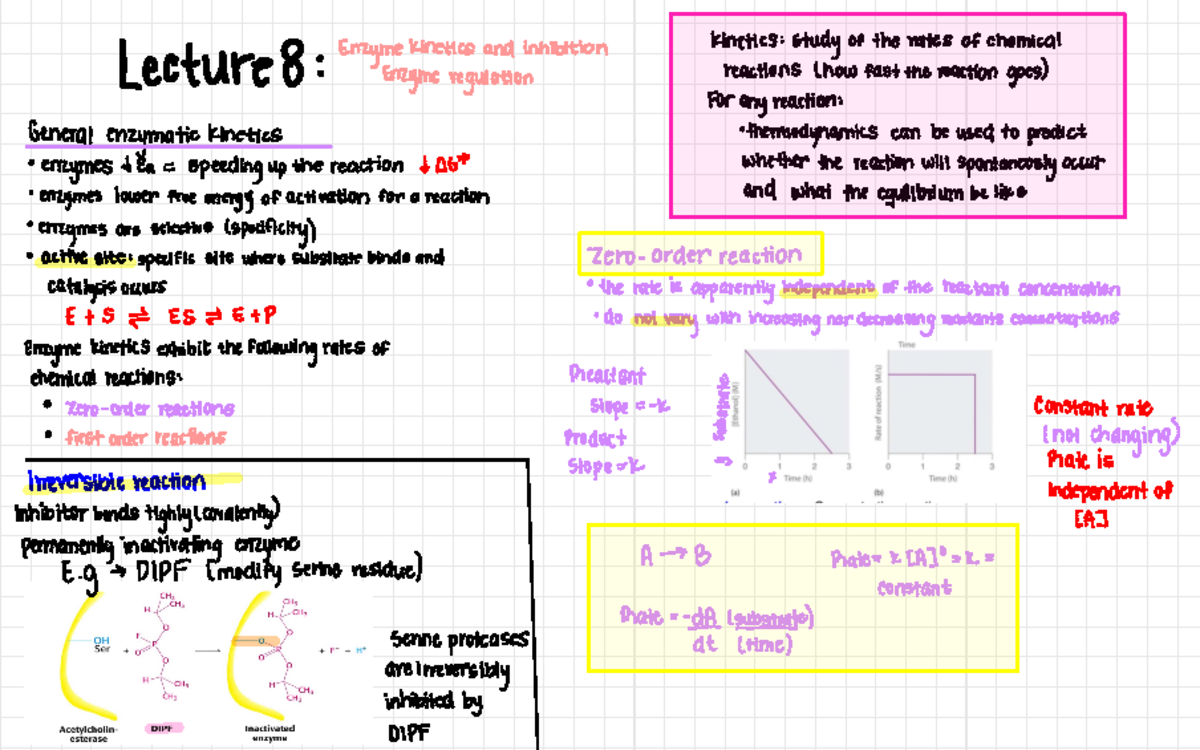 Lecture 8:
Enzyme kinetics and inhibition
Enzyme regulation
General enzymatic kinetics
• enzymes ↓ Ea = speeding up the reaction ↓ ΔG‡
• enzymes lower free energy of activation for a reaction
• enzymes are selective (specificity)
• active site: specific site where substrate binds and
catalysis occurs
E + S ⇌ ES ⇌ E + P
Enzyme kinetics exhibit the following rates of
chemical reactions:
• Zero-order reactions
• first order reactions
Irreversible reaction
Inhibitor binds tighly (covalently)
permanently inactivating enzyme
E.g → DIPF (modify serine residue)
OH
Ser
Acetylcholin-
esterase
DIPF
Inactivated
enzyme
+ F⁻ + H⁺
Serine proteases
are irreversibly
inhibited by
DIPF
kinetics: study of the rates of chemical
reactions (how fast the reaction goes)
For any reaction:
• thermodynamics can be used to predict
whether the reaction will spontaneously occur
and what the equilibrium be like
Zero-order reaction
• the rate is apparently independent of the reactants concentration
• do not vary with increasing nor decreasing reactants concentrations
Reactant
Slope = -k
Product
Slope = k
y Substrate
[Ethanol] (M)
0 1 2 3
x Time (h)
(a)
Time
Rate of reaction (M/s)
0 1 2 3
Time (h)
(b)
Constant rate
(not changing)
Rate is
independent of
[A]
A → B
Rate = k [A]⁰ = k =
constant
Rate = -dA (substrate)
dt (time)